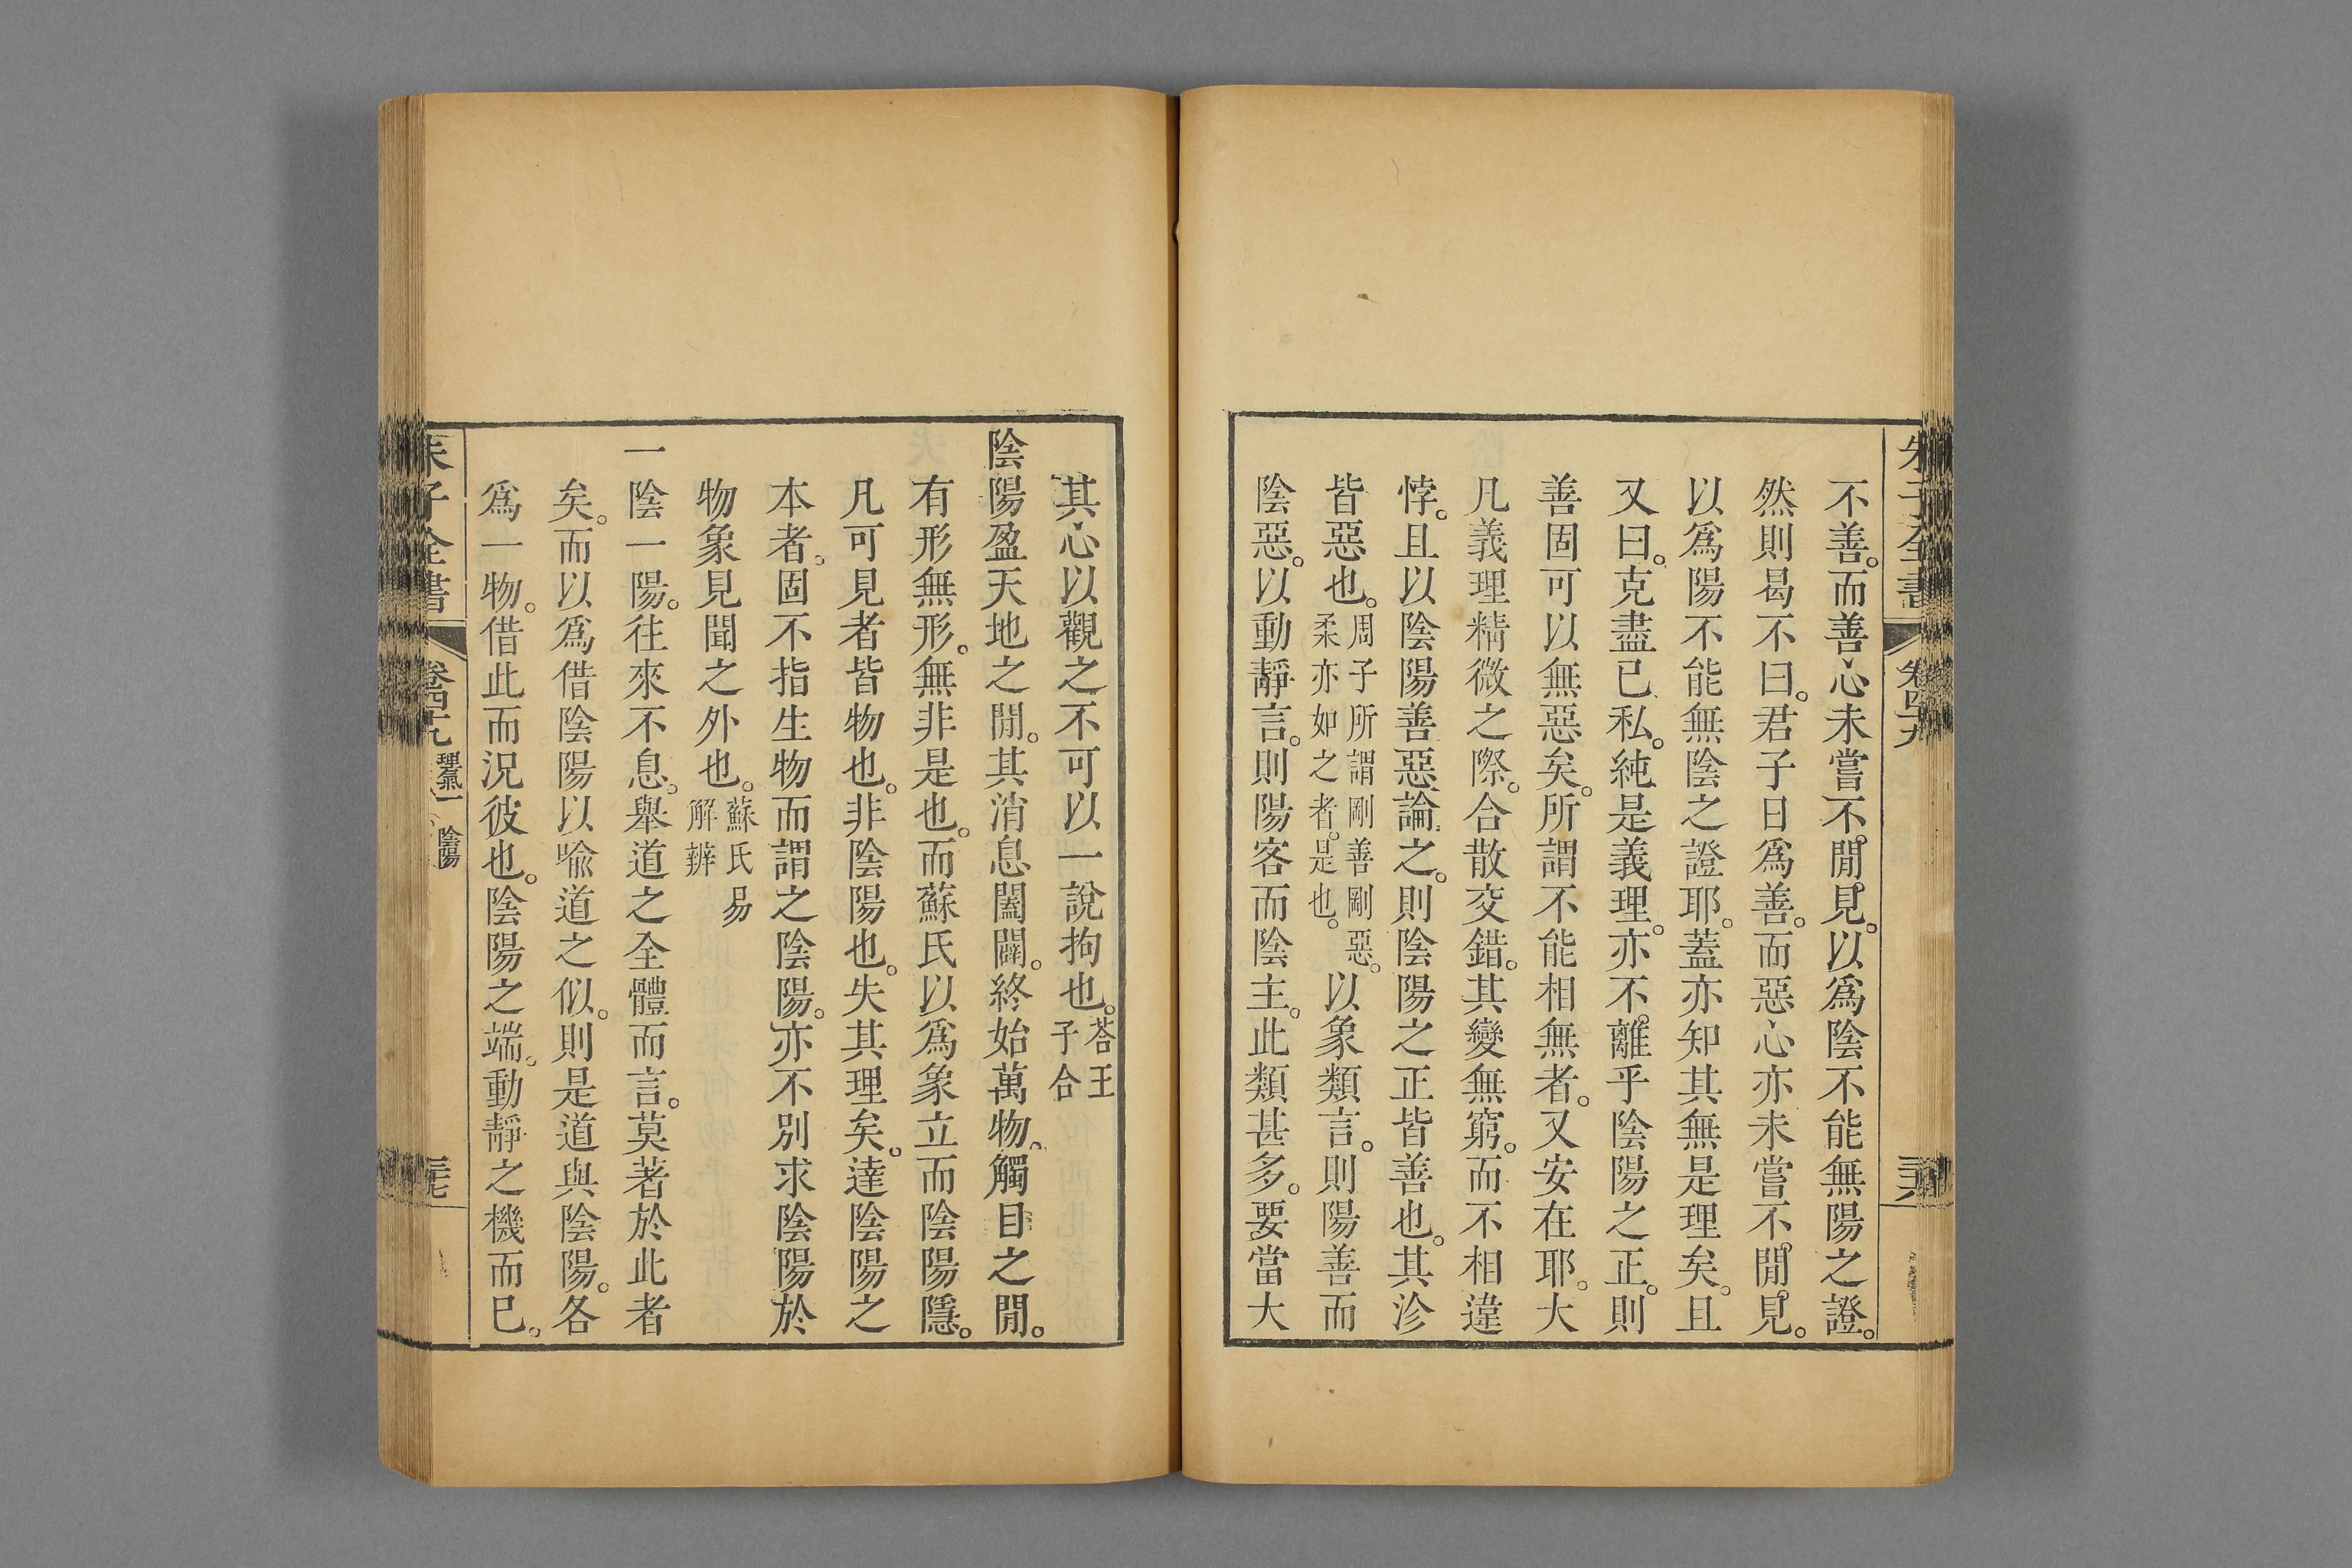 朱子全書 卷四十九 三十六
不善。而善心未嘗不閒見。以爲陰不能無陽之證。
然則曷不曰。君子日爲善。而惡心亦未嘗不閒見。
以爲陽不能無陰之證耶。蓋亦知其無是理矣。且
又曰。克盡已私。純是義理。亦不離乎陰陽之正。則
善固可以無惡矣。所謂不能相無者。又安在耶。大
凡義理精微之際。合散交錯。其變無窮。而不相違
悖。且以陰陽善惡論之。則陰陽之正皆善也。其沴
皆惡也。周子所謂剛善剛惡。柔亦如之者。是也。以象類言。則陽善而
陰惡。以動靜言。則陽客而陰主。此類甚多。要當大
其心以觀之不可以一說拘也。荅王子合
陰陽盈天地之閒。其消息闔闢。終始萬物。觸目之閒。
有形無形。無非是也。而蘇氏以爲象立而陰陽隱。
凡可見者皆物也。非陰陽也。失其理矣。達陰陽之
本者。固不指生物而謂之陰陽。亦不別求陰陽於
物象見聞之外也。蘇氏易解辨
一陰一陽。往來不息。舉道之全體而言。莫著於此者
矣。而以爲借陰陽以喻道之似。則是道與陰陽。各
爲一物。借此而況彼也。陰陽之端。動靜之機而已。
朱子全書 卷四十九 理氣一 陰陽 三十七